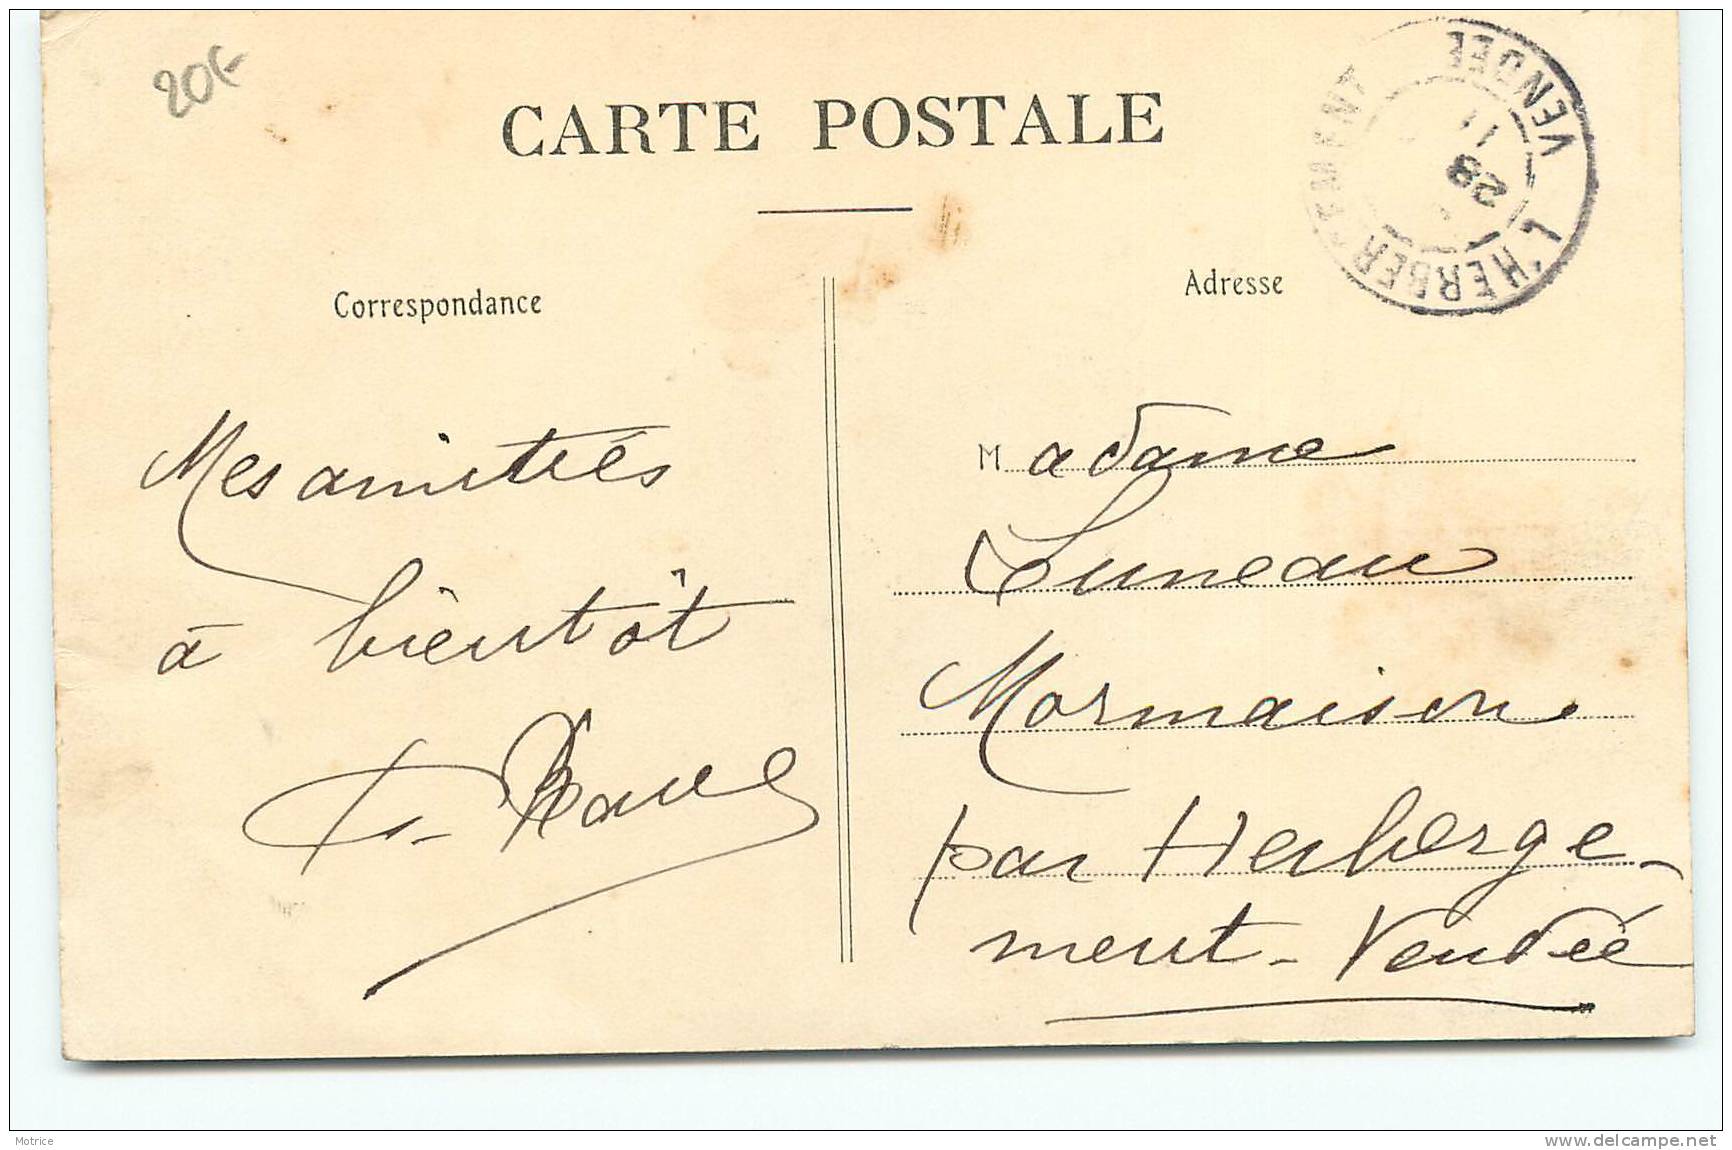 20€
CARTE POSTALE
VENDÉE
L'HERBERGEMENT
28
11
Correspondance
Adresse
Mes amitiés
à bientôt
Madame
Luneau
Mormaison
par Herberge-
ment - Vendée
Motrice
www.delcampe.net